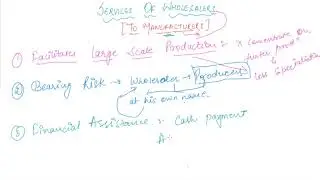 SERVICES OF WHOLESALERS
[TO MANUFACTURERS]
① Facilitates Large Scale Production : x Concentrate on
② Bearing Risk → Wholesaler → Producers
→ less Specialisation
at his own name.
③ Financial Assistance : Cash payment
A